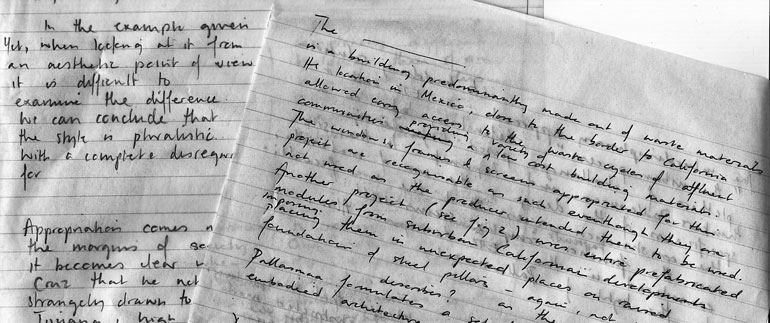 In the example given
Yet, when looking at it from
an aesthetic point of view
it is difficult to
examine the difference.
We can conclude that
the style is pluralistic.
With a complete disregar
for
Appropriation comes
the margins of
it becomes clear
Cruz that he not
strangely drawn to
Tijuana, high
The
is a building predominantly made out of waste materials
Its location in Mexico, close to the border to California
allowed easy access to the waste cycles of affluent
communities providing variety of low cost building materials.
The windows, frames & screens appropriated for this
project are recognisable as such eventhough they are
not used as the producer intended them to be used.
Another project (see fig 2) uses entire prefabricated
modules from suburban Californian developments
imposing
placing them in unexpected places on raised
foundations of steel pillars – again, not
describes? as the
Pallasmaa formulates a
embodied architecture